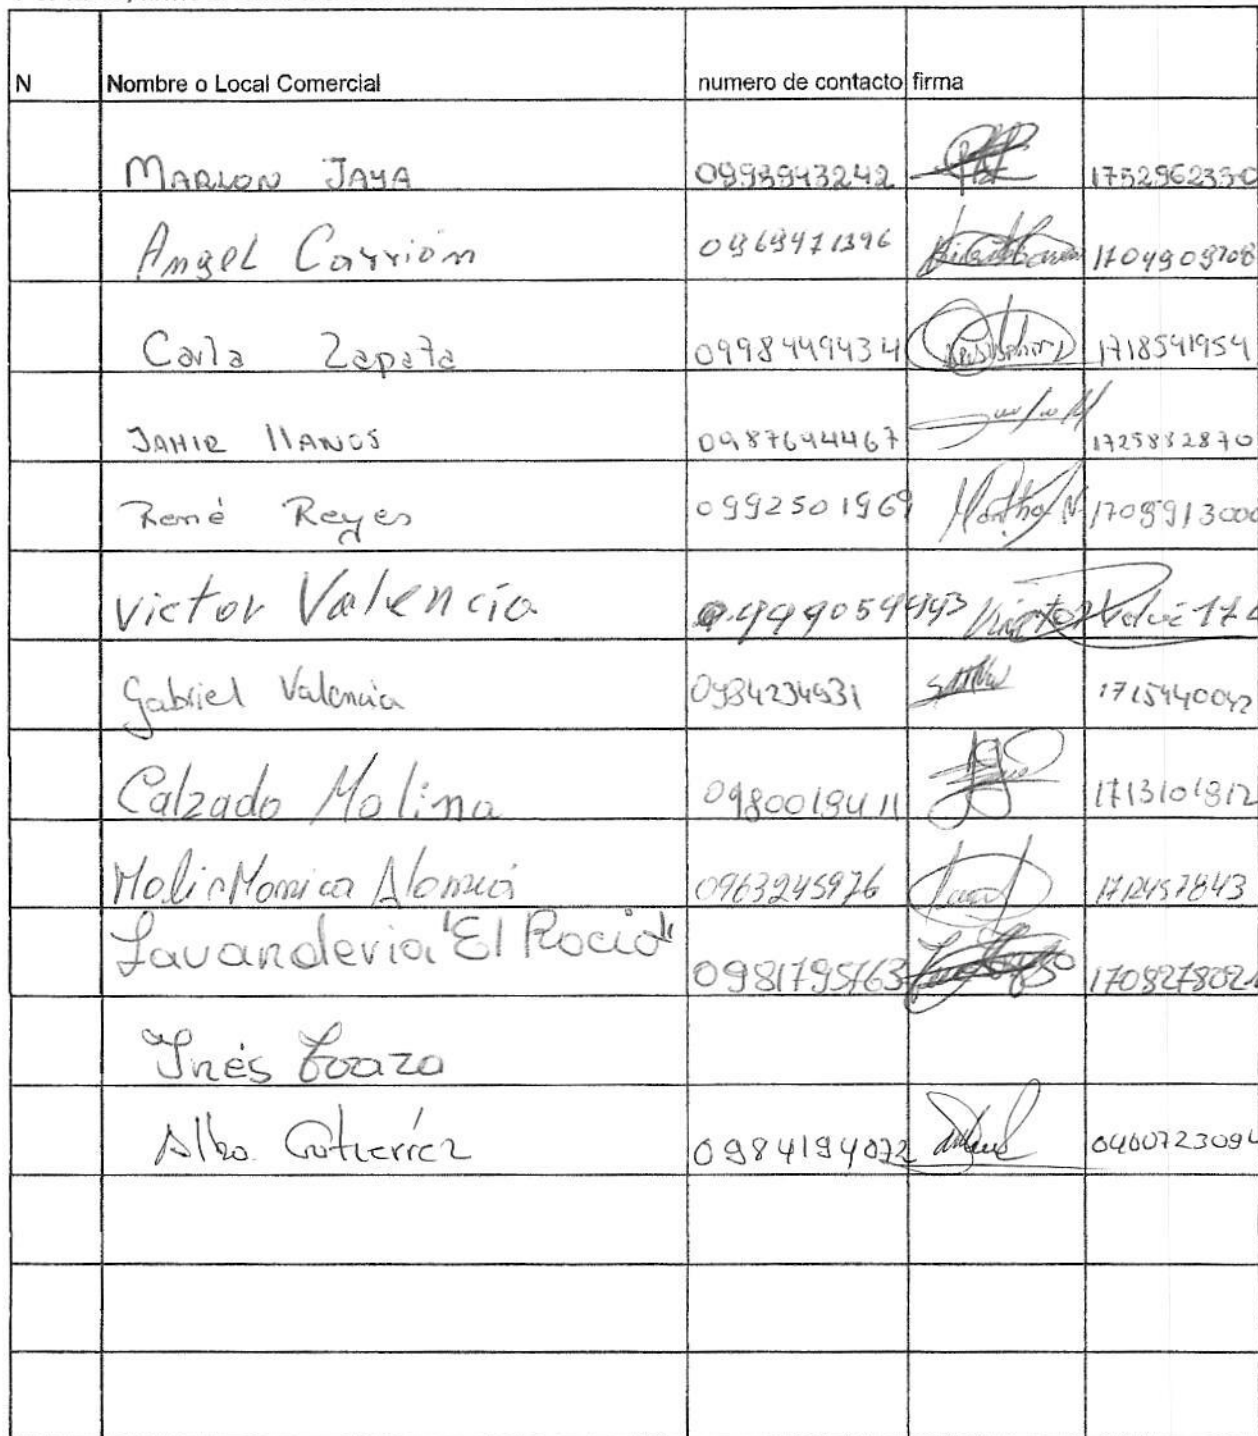 N Nombre o Local Comercial numero de contacto firma
MARLON JAYA 0993943242 1752962330
Angel Carrión 0969471396 1704909708
Carla Zapata 0998449434 1718541954
JAHIR llANOS 0987694467 1725832870
René Reyes 0992501969 1709913000
victor Valencia Victor
Gabriel Valencia 0984234931 1715440042
Calzado Molina 0980019411 1713101912
Monica 0963245976 1712457843
Lavanderia "El Rocio" 0981795763 1708278021
Inés
Alba Gutierrez 0984194072 0400723094